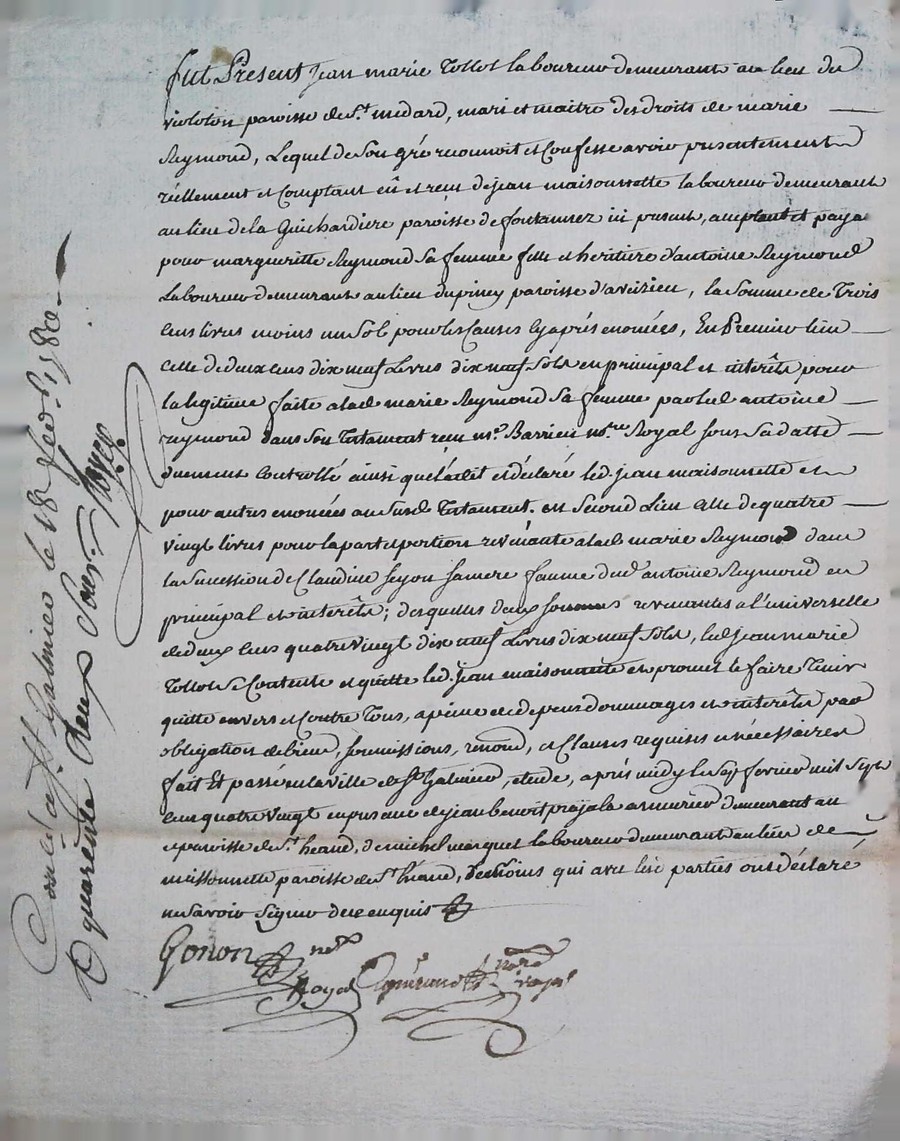 fut Present Jean marie Tollot laboureur demeurant au lieu du
violotin paroisse de St. médard, mari et maitre des droits de marie
Reymond, Lequel de Son gré reconnoit et Confesse avoir présentement
réellement et Comptant eû et reçu de jean maisonnette laboureur demeurant
au lieu de la Guichardiere paroisse de fontannez ici présent, acceptant et paya
pour margueritte Reymond Sa femme fille et héritière d'antoine Reymond
Laboureur demeurant au lieu du piney paroisse d'aveizieu, la Somme de Trois
Cens livres moins un Sol pour les Causes cy après enoncées, En Premier lieu
Celle de deux cens dix neuf Livres dix neuf Sols en principal et intérêts pour
la légitime faite a lad. marie Reymond Sa femme par led. antoine
reymond dans Son Testament reçu me. Barrieu nore. Royal Sous Sa datte
duement Controllé ainsi que l'a dit et déclaré led. jean maisonnette et
pour autres enoncées au Susd. Testament. en Second Lieu celle de quatre
vingt livres pour la part et portion revenante a lad. marie Reymond dans
la Succession de Claudine Seyon Sa mere femme dud. antoine Reymond en
principal et intérêts; desquelles deux Sommes revenantes a l'universelle
de deux Cens quatre vingt dix neuf Livres dix neuf Sols, led. jean marie
Tollot Se Contente et quitte led. jean maisonnette et promet le faire Tenir
quitte envers et Contre Tous, a peine de depens dommages et intérêts par
obligation de biens, Soumissions, renond, et Clauses requises et nécessaires
fait Et passé en la ville de St. Galmier, etude, après midy le Sept février mil Sept
Cens quatre vingt en présence de jean benoit prajala armurier demeurant au
paroisse de St. héand, de michel marquet laboureur demeurant au lieu de
maisonnette paroisse de St. héand, Témoins qui avec les parties ont déclaré
ne Savoir Signer de ce enquis
Gonon nre
Royal nore royal
Conlé a St. Galmier le 18 fevr. 1780
R quarente deux Sous